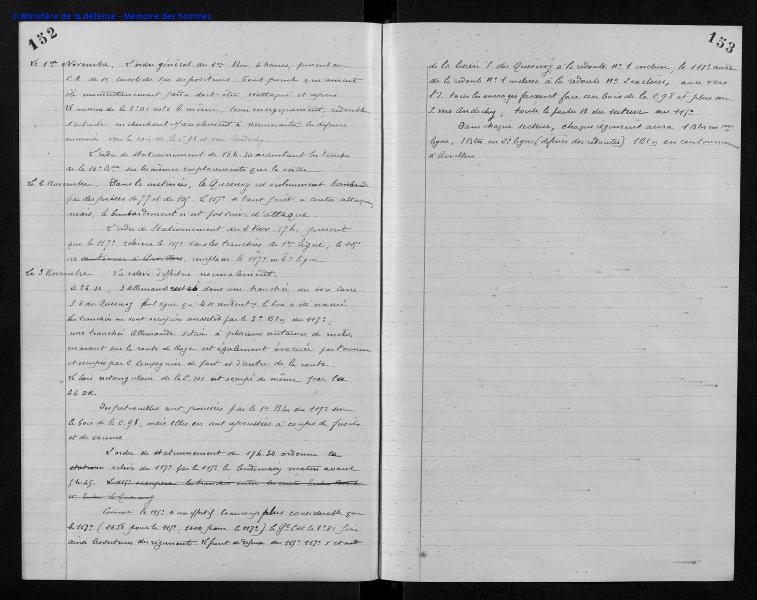 © Ministère de la défense - Mémoire des hommes
152
Le 1er Novembre. L'ordre général du 1er Nov. 4 heures, prescrit au
C.A. de se consolider sur ses positions. Tout procédé qui aurait
été momentanément perdu doit être réattaqué et repris
La mission de la 8e DI est la même, tenir énergiquement, redoubler
d'activité en cherchant spécialement à reconnaître les défenses
ennemies vers le bois de la C. 98 et vers Andéchy.
L'ordre de stationnement de 18h.30 maintient les troupes
de la 16e Bde sur les mêmes emplacements que la veille.
Le 2 Novembre. Dans la matinée, le Quesnoy est violemment bombardé
par des pièces de 77 et de 105. Le 117e se tient prêt à contre attaquer,
mais, le bombardement n'est pas suivi d'attaque.
L'ordre de Stationnement du 2 Nov. 17h. prescrit
que le 117e relèvera le 115e dans les tranchées de 1ère ligne; le 115e
ira cantonner à Arvillers, remplacer le 117e en 2e ligne
Le 3 Novembre La relève s'effectue normalement.
A 8h.30, 3 allemands dans une tranchée du bois Carré
S.E du Quesnoy font signe qu'ils se rendent; le bois a été évacué
les tranchées en sont occupées aussitôt par le 2e Btn du 117e;
une tranchée Allemande située à plusieurs centaines de mètres
en avant sur la route de Roye est également évacuée par l'ennemi
et occupée par 2 Compagnies de part et d'autre de la route.
Le bois rectangulaire de la C. 101 est occupé de même par
Des patrouilles sont poussées par le 1er Btn du 117e sur
le bois de la C. 98, mais elles en sont repoussées à coups de fusils
et de canons.
L'ordre de stationnement de 17h.30 ordonne la
relève du 117e par le 115e le lendemain matin avant
5h.45. Le 115e occupera les tranchées entre la route
et le Quesnoy
Comme le 115e a un effectif beaucoup plus considérable que
le 117e ( pour le 115e, 1200 pour le 117e) le Gal Cdt la 8e DI fixe
ainsi les secteurs des régiments. Le front de défense du 115e 117e
153
de la lisière S. du Quesnoy, à la redoute No. 1 incluse, le 117e aura
de la redoute No. 1 incluse à la redoute No. 2 exclue, avec vers
l'E. tous les ouvrages faisant face au bois de la C. 98 et plus au
S. vers Andéchy; toute la partie N. du secteur au 115e.
Dans chaque secteur, chaque régiment aura 1 Btn en 1ère
ligne, 1 Btn en 2e ligne (défense des redoutes) 1 Btn en cantonnement
à Arvillers